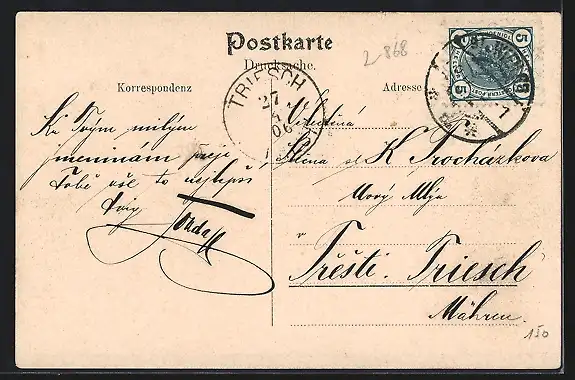 Postkarte
2-868
Drucksache.
Korrespondenz
Adresse
TRIESCH
27
06
5
5
7
Ku Tvým milým
meninám přeje
Tobě vše to nejlepší
Tvůj
Velectěná
slečna sl K Procházkova
Nový Mlýn
v
Třešti. Triesch
Mähren.
150